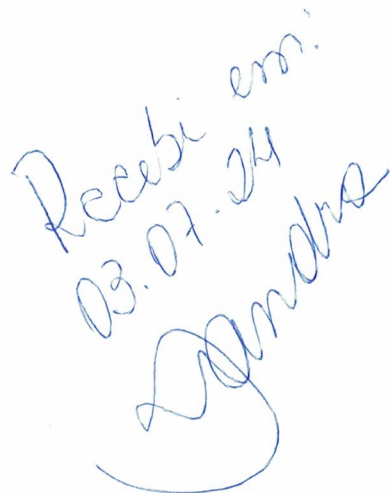 Recebi em:
03.07.24
Sandra